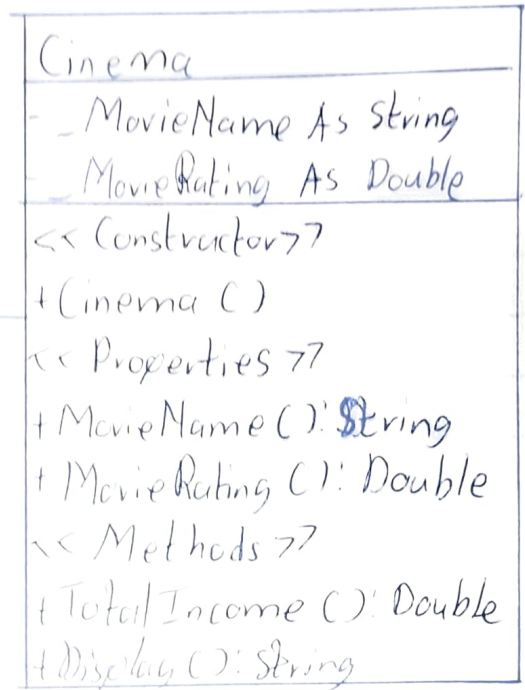 Cinema
- _MovieName As String
- _MovieRating As Double
<< Constructor >>
+ Cinema ( )
<< Properties >>
+ MovieName ( ): String
+ MovieRating ( ): Double
<< Methods >>
+ TotalIncome ( ): Double
+ Display ( ): String